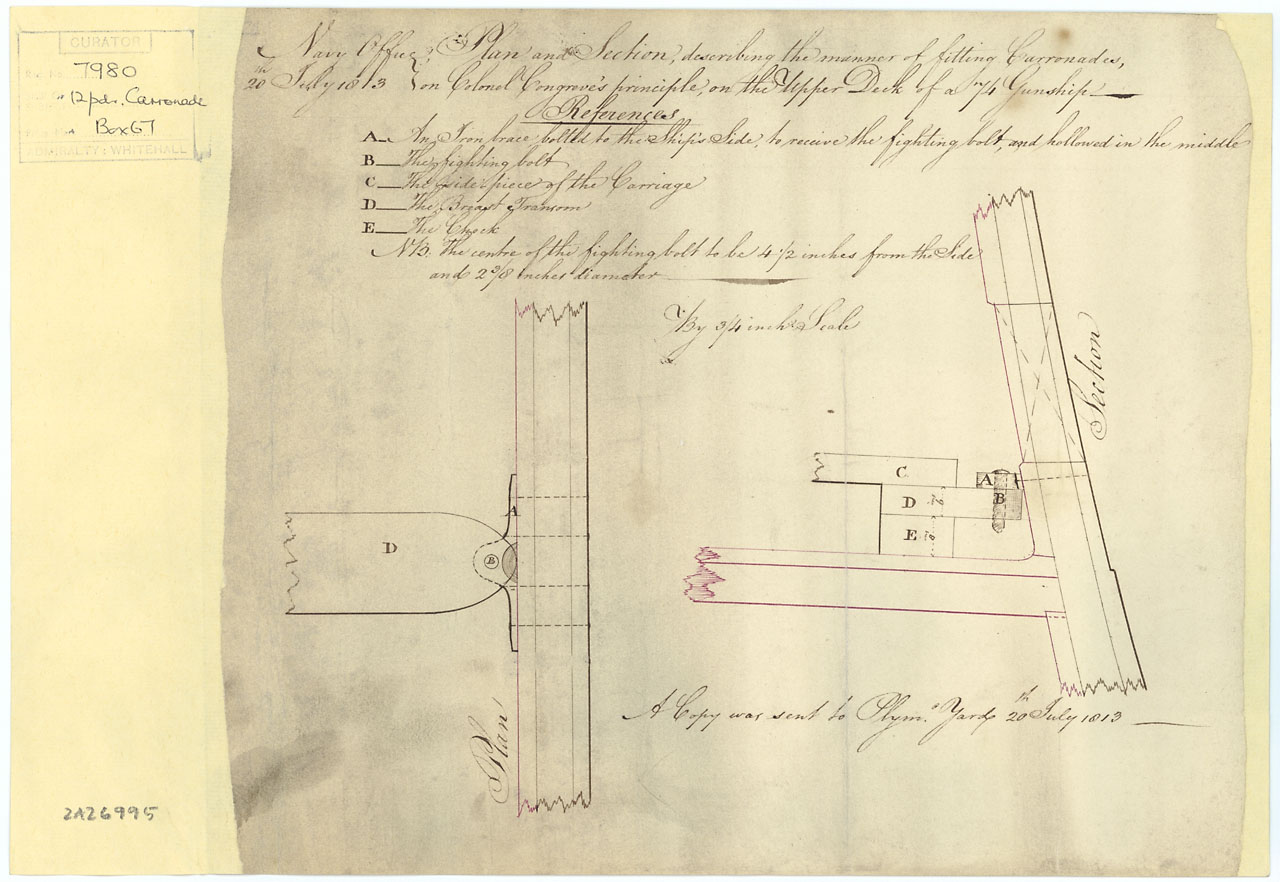 CURATOR
7980
" 12 pdr. Carronade
Box 67
ADMIRALTY: WHITEHALL
Navy Office, Plan and Section, describing the manner of fitting Carronades,
20th July 1813 on Colonel Congreve's principle, on the Upper Deck of a 74 Gunship
References
A An Iron brace bolted to the Ship's Side, to receive the fighting bolt, and hollowed in the middle
B The fighting bolt
C The side piece of the Carriage
D The Breast Transom
E The Chock
NB. The centre of the fighting bolt to be 4 1/2 inches from the Side
and 2 3/8 inches diameter
By 3/4 inch Scale
Section
C
A
D
B
E
A
D
B
Plan
A Copy was sent to Plymo. Yard 20th July 1813
2A26995